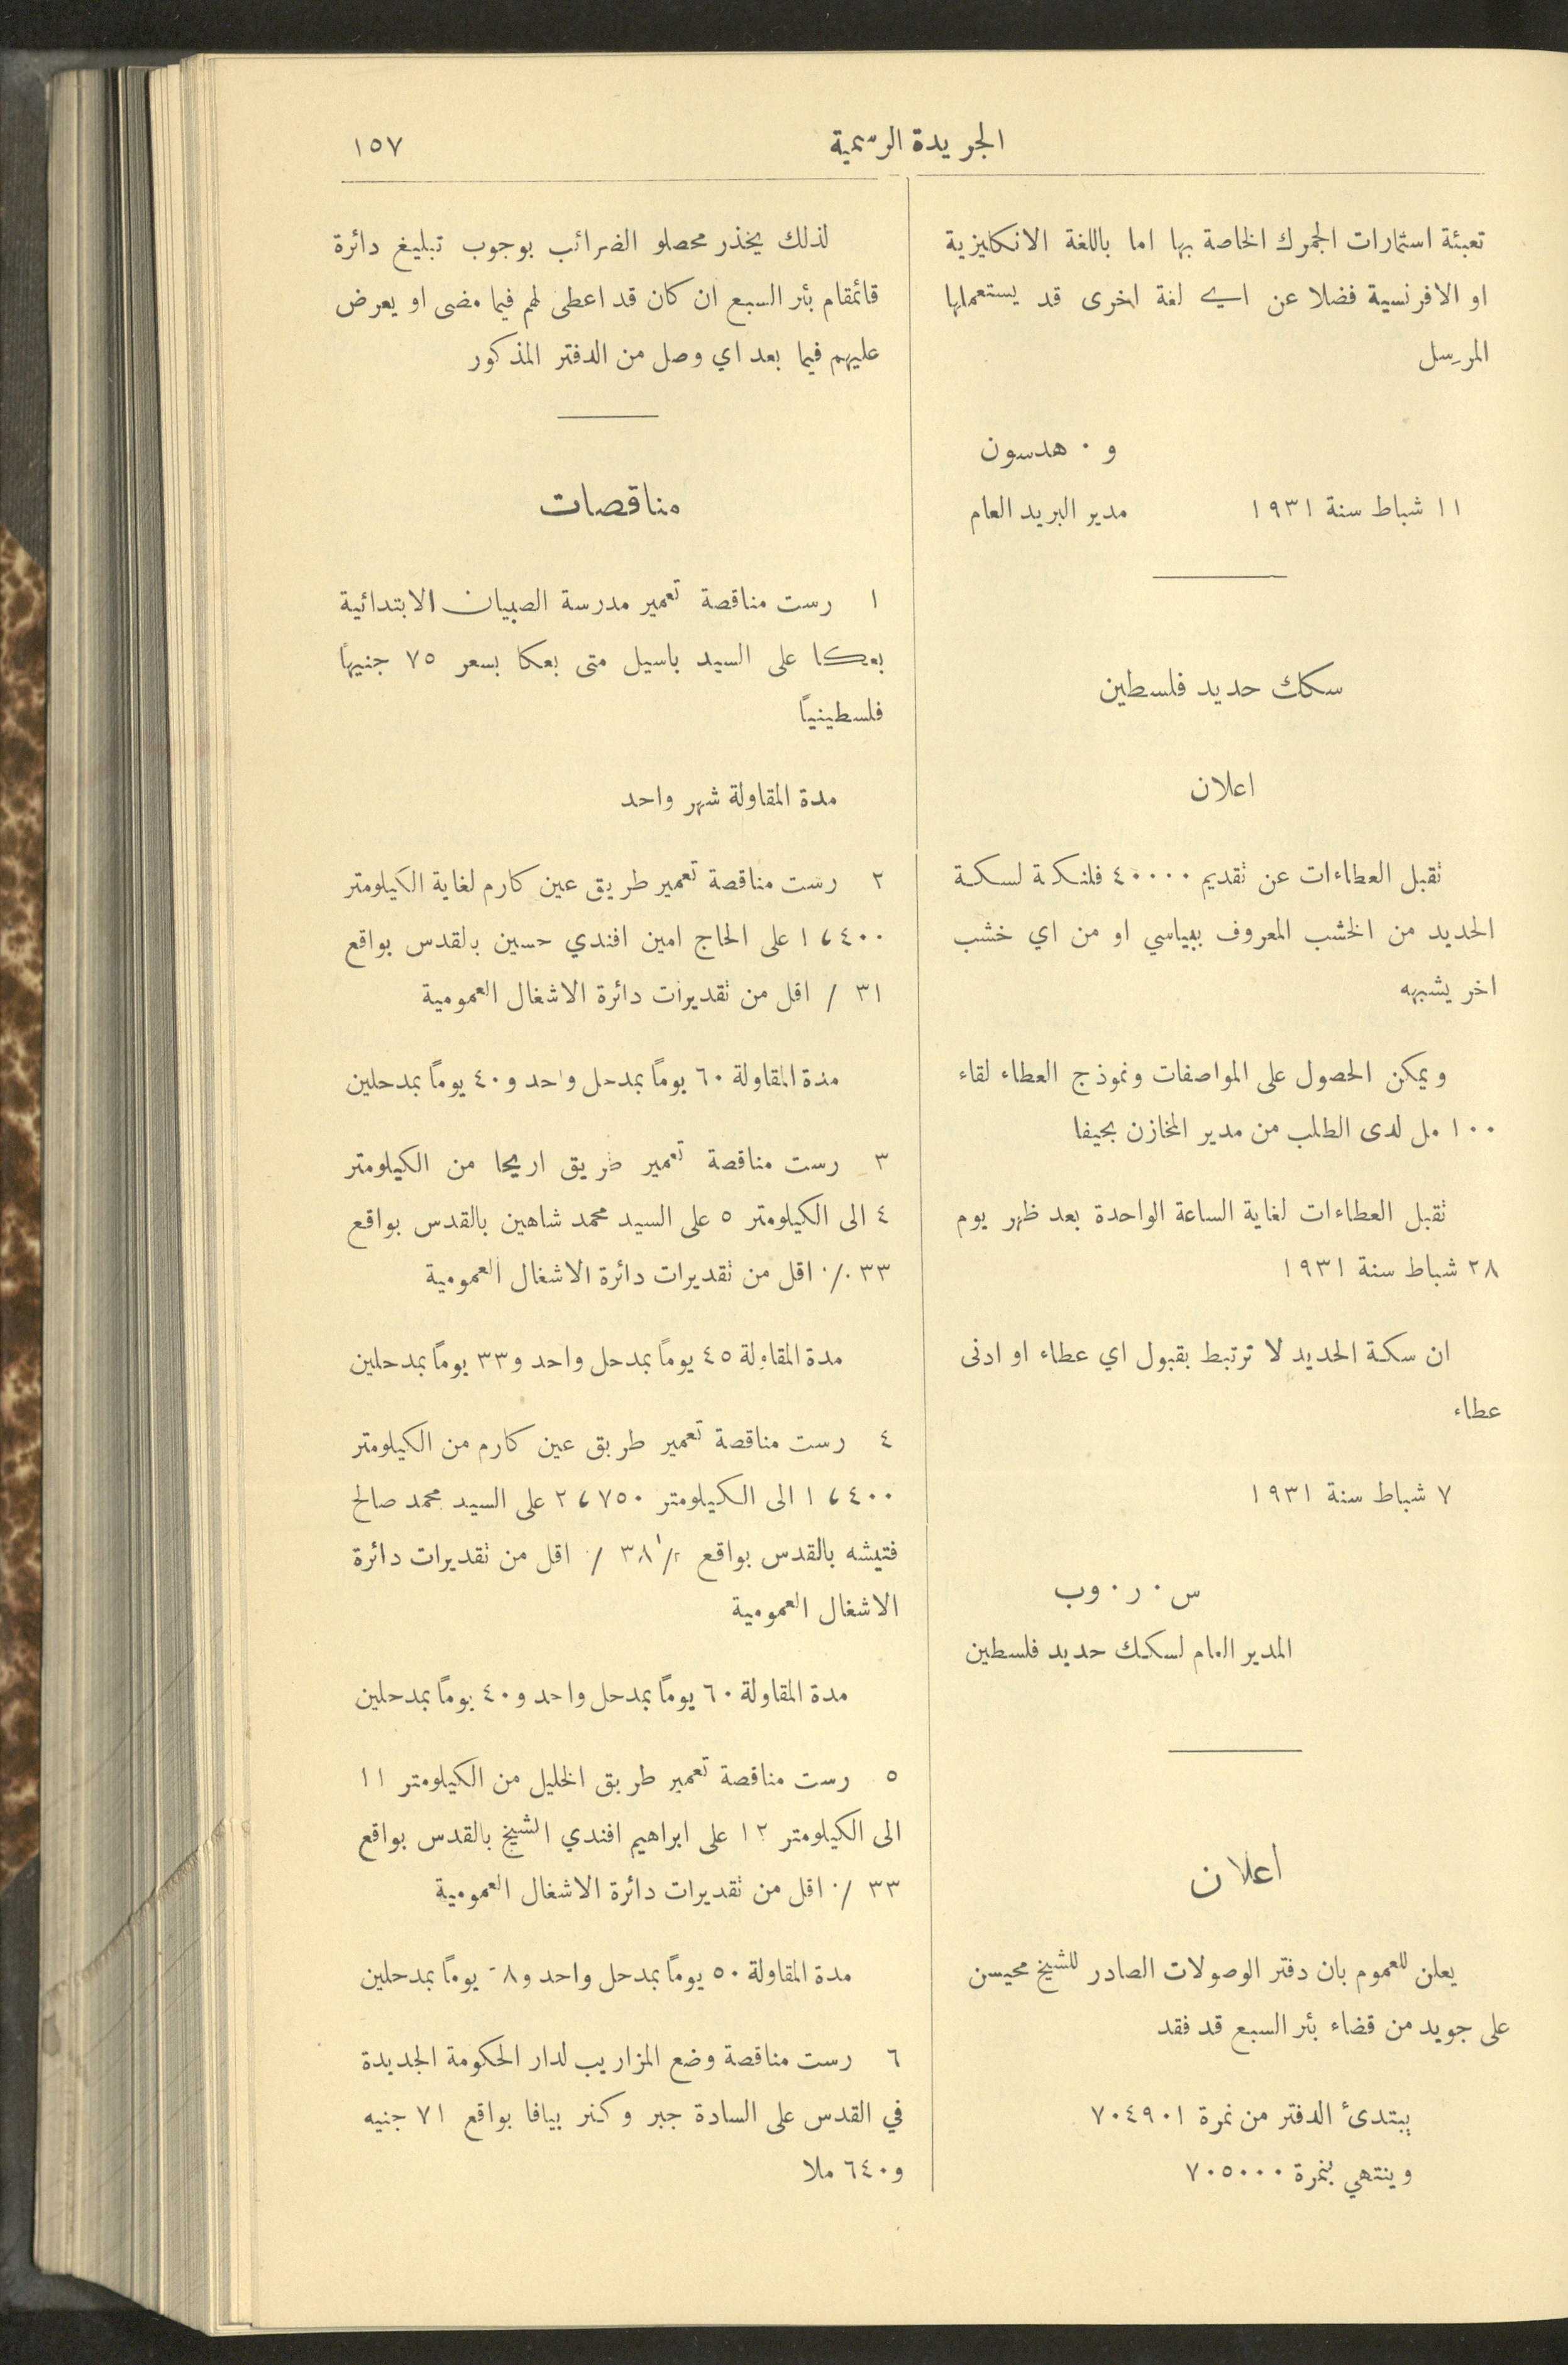 الجريدة الرسمية
١٥٧
تعبئة استمارات الجمرك الخاصة بها اما باللغة الانكليزية
او الافرنسية فضلا عن اي لغة اخرى قد يستعملها
المرسل
و ٠ هدسون
١١ شباط سنة ١٩٣١
مدير البريد العام
سكك حديد فلسطين
اعلان
تقبل العطاءات عن تقديم ٤٠٠٠٠ فلنكة لسكة
الحديد من الخشب المعروف ببياسي او من اي خشب
اخر يشبهه
ويمكن الحصول على المواصفات ونموذج العطاء لقاء
١٠٠ مل لدى الطلب من مدير المخازن بحيفا
تقبل العطاءات لغاية الساعة الواحدة بعد ظهر يوم
٢٨ شباط سنة ١٩٣١
ان سكة الحديد لا ترتبط بقبول اي عطاء او ادنى
عطاء
٧ شباط سنة ١٩٣١
س ٠ ر ٠ وب
المدير العام لسكك حديد فلسطين
اعلان
يعلن للعموم بان دفتر الوصولات الصادر للشيخ محيسن
على جويد من قضاء بئر السبع قد فقد
يبتدئ الدفتر من نمرة ٧٠٤٩٠١
وينتهي بنمرة ٧٠٥٠٠٠
لذلك يحذر محصلو الضرائب بوجوب تبليغ دائرة
قائمقام بئر السبع ان كان قد اعطى لهم فيما مضى او يعرض
عليهم فيما بعد اي وصل من الدفتر المذكور
مناقصات
١ رست مناقصة تعمير مدرسة الصبيان الابتدائية
بعكا على السيد باسيل متى بعكا بسعر ٧٥ جنيهاً
فلسطينياً
مدة المقاولة شهر واحد
٢ رست مناقصة تعمير طريق عين كارم لغاية الكيلومتر
١،٤٠٠ على الحاج امين افندي حسين بالقدس بواقع
٣١ / اقل من تقديرات دائرة الاشغال العمومية
مدة المقاولة ٦٠ يوماً بمدحل واحد و٤٠ يوماً بمدحلين
٣ رست مناقصة تعمير طريق اريحا من الكيلومتر
٤ الى الكيلومتر ٥ على السيد محمد شاهين بالقدس بواقع
٣٣ ٪ اقل من تقديرات دائرة الاشغال العمومية
مدة المقاولة ٤٥ يوماً بمدحل واحد و٣٣ يوماً بمدحلين
٤ رست مناقصة تعمير طريق عين كارم من الكيلومتر
١،٤٠٠ الى الكيلومتر ٢،٧٥٠ على السيد محمد صالح
فتيشه بالقدس بواقع ١/٢ ٣٨ ٪ اقل من تقديرات دائرة
الاشغال العمومية
مدة المقاولة ٦٠ يوماً بمدحل واحد و٤٠ يوماً بمدحلين
٥ رست مناقصة تعمير طريق الخليل من الكيلومتر ١١
الى الكيلومتر ١٢ على ابراهيم افندي الشيخ بالقدس بواقع
٣٣ ٪ اقل من تقديرات دائرة الاشغال العمومية
مدة المقاولة ٥٠ يوماً بمدحل واحد يوماً بمدحلين
٦ رست مناقصة وضع المزاريب لدار الحكومة الجديدة
في القدس على السادة جبر وكنر بيافا بواقع ٧١ جنيه
و٦٤٠ ملا